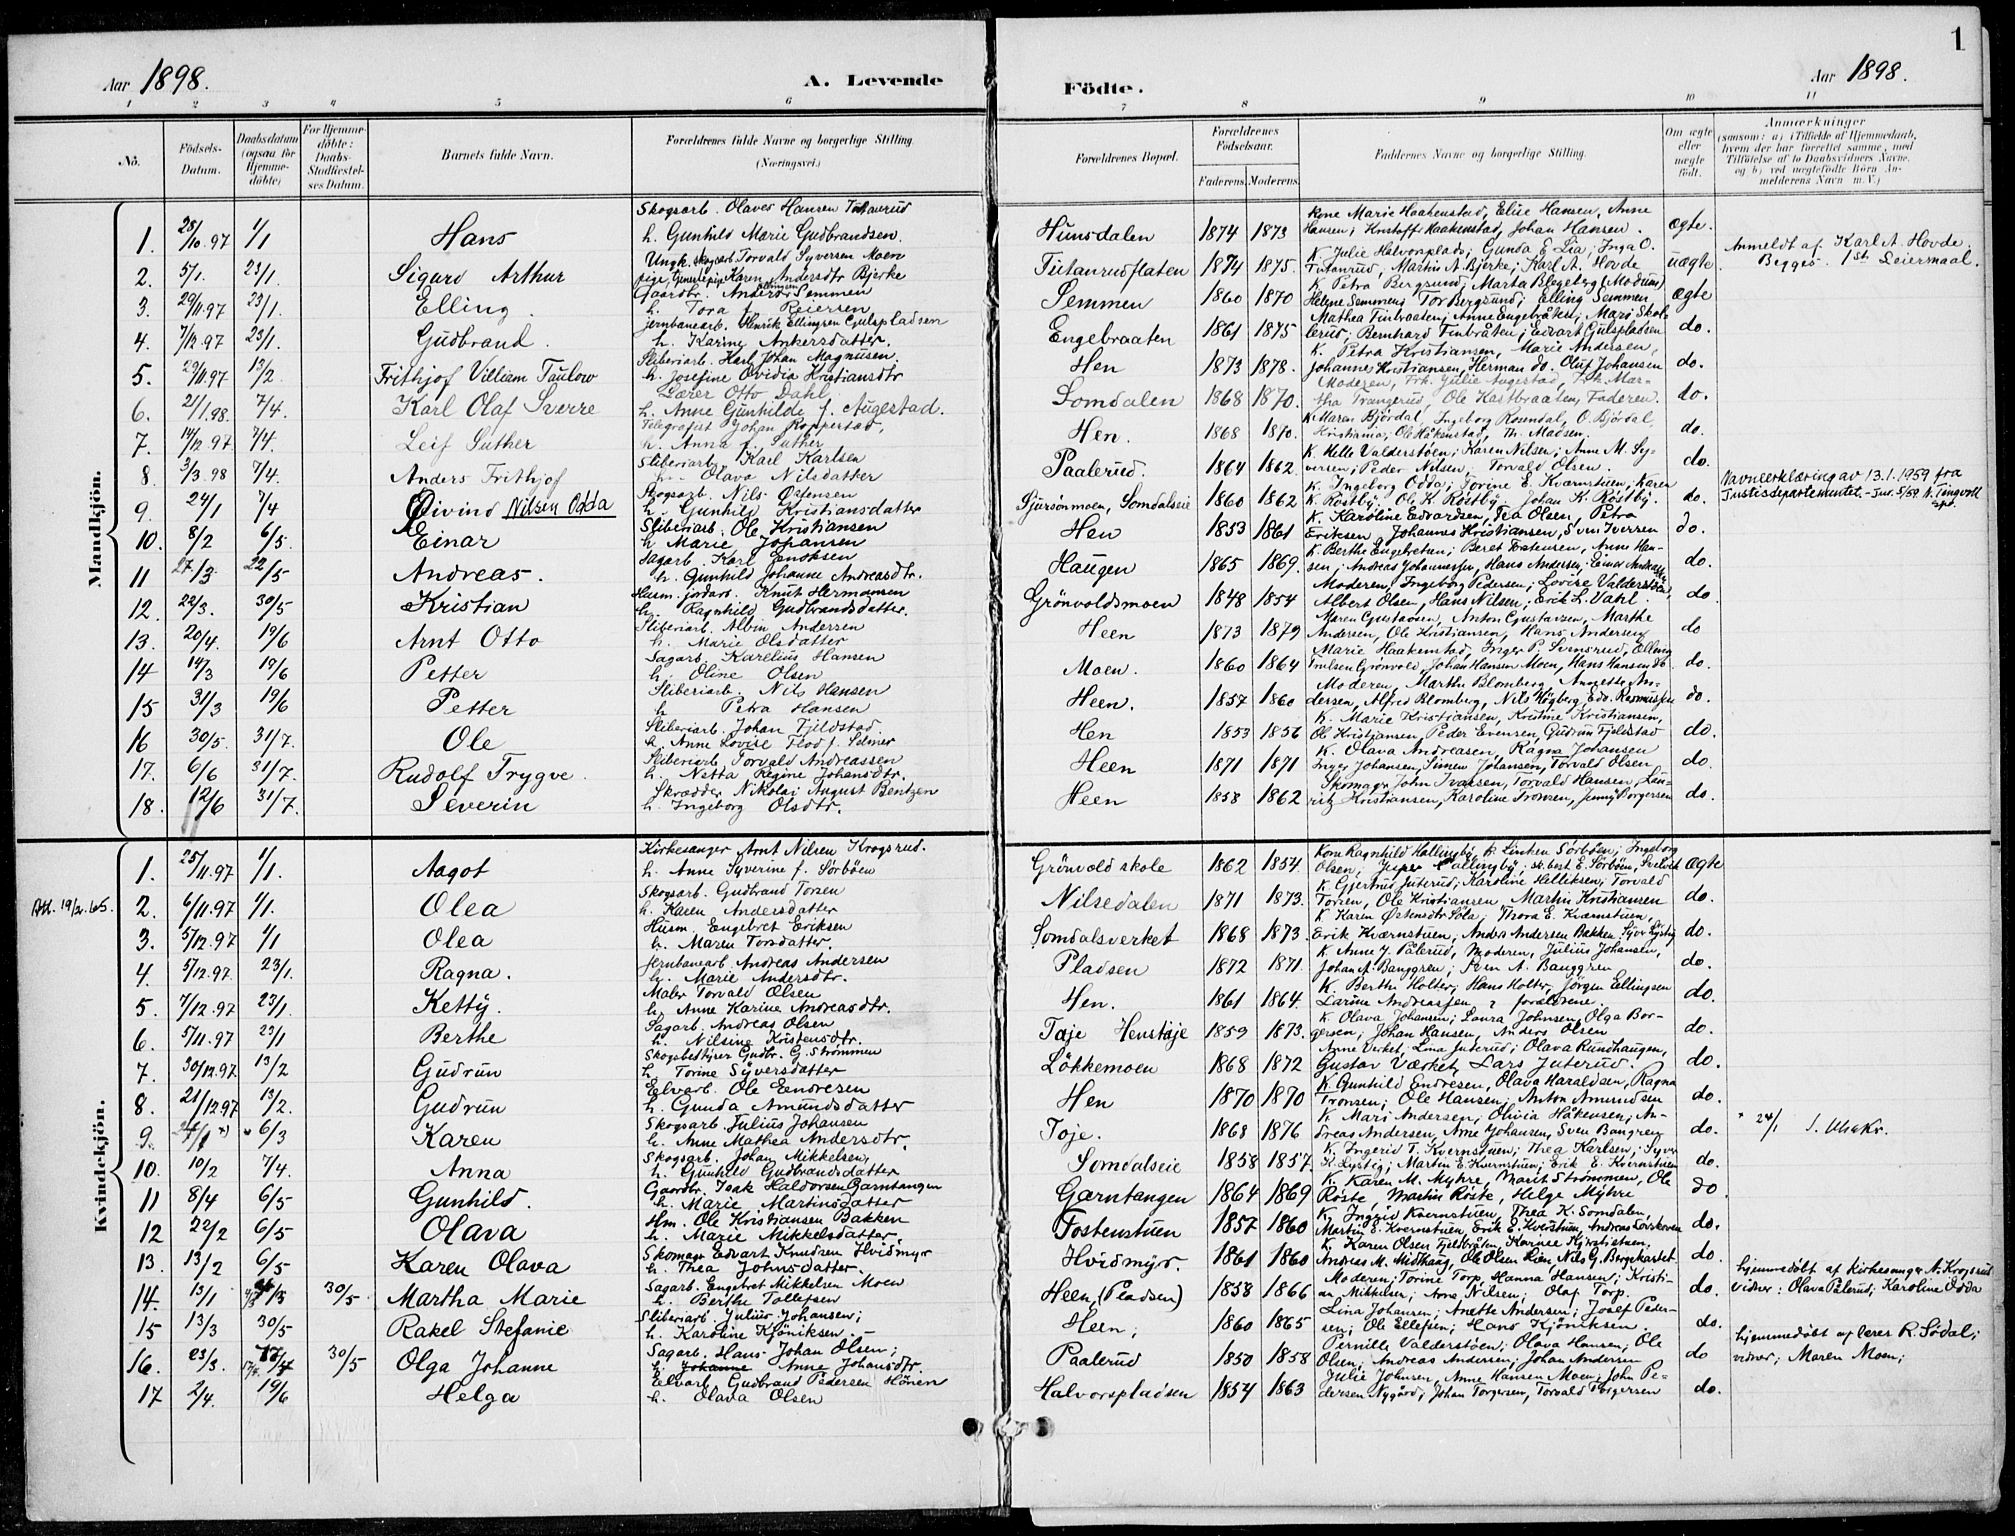 1
Aar 1898.
A. Levende
Födte.
Aar 1898.
1 2 3 4 5 6 7 8 9 10 11
No.
Födsels-Datum.
Daabsdatum (ogsaa for Hjemme-döbte)
For Hjemme-döbte: Daabs-Stadfæstel-ses Datum.
Barnets fulde Navn.
Forældrenes fulde Navne og borgerlige Stilling. (Næringsvei.)
Forældrenes Bopæl.
Forældrenes Födselsaar.
Faderens. Moderens.
Faddernes Navne og borgerlige Stilling.
Om ægte eller uægte födt.
Anmærkninger
(saasom: a) i Tilfælde af Hjemmedaab, hvem der har forrettet samme, med Tilföielse af to Daabsvidners Navne, og b) ved uægtefödte Börn An-melderens Navn m. V.)
Mandkjön.
1. 28/10.97 1/1 Hans Skogsarb. Olaves Hansen Tutanrud h. Gunhild Marie Gudbrandsen. Hunsdalen 1874 1873 Kone Marie Haakenstad, Elise Hansen, Anne Hansen; Kristoffer Haakenstad, Johan Hansen. ægte.
2. 5/1. 23/1 Sigurd Arthur Ungk. skogsarb Torvald Syversen Moen pige, Karen Andersdtr Bjerke Tutanrudflaten 1874 1875. K. Julie Halvorsplads; Gunda E. Lia; Inga O. Tutanrud, Martin A. Bjerke; Karl A. Hovde uægte Anmeldt af Karl A. Hovde. Begges 1st Leiermaal.
3. 29/11.97 23/1. Elling. Gaardbr. Anders Semmen h. Tora f. Reiersen Semmen 1860 1870 K. Petra Bergsund; Marta Blegeberg (Modum) Helene Semmen; Tor Bergsund; Elling Semmen ægte
4. 7/12.97 23/1. Gudbrand. Jernbanearb. Henrik Ellingsen Gulspladsen h. Karine Ankersdatter. Engebraaten 1861 1875 Mathea Finbraaten; Anne Engebråten; Mari Skolerud; Bernhard Finbråten; Edvart Gulspladsen do.
5. 29/11.97 13/2. Frithjof Villiam Taulow Sliberiarb. Karl Johan Magnusen. h. Josefine Ovidia Kristiansdtr Hen 1873 1878. K. Petra Kristiansen, Marie Andersen, Johannes Kristiansen, Herman do. Oluf Johansen do.
6. 2/1.98. 7/4. Karl Olaf Sverre Lærer Otto Dahl, h. Anne Gunhilde f. Augestad. Somdalen 1868 1870. Moderen, Frk. Julie Augestad, Frk. Martha Trangerud, Ole Kastbraaten, Faderen. do.
7. 14/12.97. 7/4. Leif Suther Telegrafist Johan Kopperstad, h. Anna f. Suther Hen. 1868 1870. K. Maren Björdal, Ingeborg Rosendal, O. Björdal, Kristiania; Ole Håkenstad, Th. Madsen. do.
8 3/3 98 7/4. Anders Frithjof Sliberiarb. Karl Karlsen h. Olava Nilsdatter Paalerud. 1864 1862. K. Helle Valderstöen; Karen Nilsen; Anne M. Syversen; Peder Nilsen; Torvald Olsen. do.
9. 24/1 7/4 Öivind Nilsen Odda Skogsarb. Nils Östensen h. Gunhild Kristiansdatter Sjursönmoen, Somdalseie 1860 1862 K. Ingeborg Odda; Torine E. Kværnstuen; Karen K. Röstby. Ole K. Röstby. Johan K. Röstby. do. Navneerklæring av 13.1.1959 fra Justisdepartementet. - Jnr. 5/59 N. Tingvoll spr.
10. 8/2 6/5. Einar Sliberiarb. Ole Kristiansen h Marie Johansen Hen 1853 1861 K. Karoline Edvardsen, Tea Olsen, Petra Eriksen, Johannes Kristiansen, Sven Iversen do.
11 27/3. 22/5 Andreas. Sagarb. Karl Enoksen h. Gunhild Johanne Andreasdtr. Haugen 1865 1869. K. Berthe Engebretsen; Beret Torstensen, Anne Hansen; Andreas Johannessen, Hans Andersen, Einar Andreassen do.
12. 22/3. 30/5 Kristian Husm. jordarb. Knut Hermansen h. Ragnhild Gudbrandsdatter. Grönvoldsmoen 1848 1854 Moderen, Ingeborg Pedersen; Lovise Valderstöen, Albert Olsen, Hans Nilsen; Erik L. Vahl. do.
13. 20/4. 19/6 Arnt Otto Sliberiarb. Albin Andersen h. Marie Olsdatter Heen 1873 1879 Maren Gustavsen, Anton Gustavsen, Marthe Andersen, Ole Kristiansen, Hans Andersen do
14 14/3 19/6 Petter Sagarb. Karelius Hansen h. Oline Olsen Moen. 1860 1864 Marie Haakenstad, Inger P. Semsrud, Elling Trulsen Grönvold, Johan Hansen Moen, Hans Hansen do do.
15 31/3 19/6 Petter Sliberiarb. Nils Hansen h Petra Hansen Heen. 1857 1860 Moderen, Marthe Blomberg, Annette Andersen, Alfred Blomberg, Nils Högberg, Edv. Rasmussen do.
16 30/5. 31/7. Ole Sliberiarb. Johan Fjeldstad h. Anne Lovise Flod f. Selmer Hen 1853 1856 K. Marie Kristiansen, Kristine Kristiansen, Ole Kristiansen, Peder Evensen, Gudrun Fjeldstad do.
17. 6/6 31/7. Rudolf Trygve. Sliberiarb. Torvald Andreassen h. Netta Regine Johansdtr. Heen 1871 1871 K. Olava Andreasen, Ragna Johansen Inger Johansen, Simen Johansen, Torvald Olsen do.
18. 12/6 31/7. Severin Skrædder Nikolai August Bentzen h. Ingeborg Olsdtr. Heen 1858 1862 Skomagr John Ivarsen, Torvald Hansen, Lauritz Kristiansen, Karoline Tronsen, Jenny Borgersen do.
Kvindekjön.
1. 25/11.97 1/1. Aagot Kirkesanger Arnt Nilsen Krogsrud. h. Anne Syverine f. Sörböen Grönvold skole 1862 1854. Kone Ragnhild Hallingby, K. Linken Sörböen; Ingeborg Olsen, Jesper Hallingby; sk.best. E. Sörböen, Svelvik ægte
Att. 19/2.65. 2. 6/11.97 1/1. Olea Skogsarb. Gudbrand Torsen h. Karen Andersdatter Nilsedalen 1871 1873. K. Gjertrud Juterud; Karoline Helliksen; Torvald Torsen, Ole Kristiansen Martin Kristiansen do.
3. 5/12.97 1/1 Olea Husm. Engebret Eriksen h. Maren Torsdatter. Somdalsverket 1868 1873. K. Karen Östensdtr Söla; Thora E. Kværnstuen, Erik Kværnstuen, Anders Andersen Bakken, Syver Lystig do.
4. 5/12.97. 23/1. Ragna. Jernbanearb. Andreas Andersen h. Marie Andersdtr. Pladsen 1872 1871. K. Anne J. Pålerud, Moderen, Julius Johansen, Johan A. Banggren; Sven A. Banggren do.
5. 7/12.97 23/1 Ketty. Maler Torvald Olsen h. Anne Karine Andreasdtr. Hen. 1861 1864. K. Berthe Holter; Hans Holter, Jørgen Ellingsen Larine Andreassen & forældrene. do.
6. 5/11.97 23/1 Berthe Sagarb. Andreas Olsen h. Nilsine Kristensdtr. Toje Henstoje 1859 1873. K. Olava Johansen; Laura Johnsen, Olga Borgersen; Johan Hansen, Anders Olsen do.
7. 30/12.97. 13/2 Gudrun Skogsbestyrer Gudbr. G. Strömmen h. Torine Syversdatter Lökkemoen 1868 1872 Anne Verket; Lina Juterud; Olava Rundhaugen, Gustav Værket, Lars Juterud. do.
8. 21/12.97 13/2. Gudrun Elvarb. Ole Endresen h. Gunda Amundsdatter Hen 1870 1870 K. Gunhild Endresen, Olava Haraldsen, Ragna Tronsen; Ole Hansen; Anton Amundsen do.
9. 6/3 Karen Skogsarb. Julius Johansen h. Anne Mathea Andersdtr. Toje. 1868 1876 K. Mari Andersen; Olivia Håkensen; Andreas Andersen, Arne Johansen, Sven Bangren do. * 24/1 J. Uhakr.
10. 10/2 7/4. Anna Skogsarb. Johan Mikkelsen, h. Gunhild Gudbrandsdatter Somdalseie 1858 1857. K. Ingerid T. Kvernstuen; Thea Karlsen; Syver K. Lystig; Martin E. Kvernstuen; Erik E. Kvernstuen do.
11 8/4 6/5 Gunhild. Gaardbr. Isak Haldorsen Garntangen h. Marie Martinsdatter Garntangen 1864 1869 K. Karen M. Myhre, Marit Strömmen, Ole Röste, Martin Röste, Helge Myhre do
12 22/2 6/5 Olava Hm. Ole Kristiansen Bakken h. Marie Mikkelsdatter. Tostenstuen 1857 1860 K. Ingrid Kvernstuen, Thea K. Somdalen, Martin E. Kvernstuen, Erik E. Kverstuen, Andreas Lövskoven do.
13. 13/2 6/5 Karen Olava Skomagr Edvart Knudsen Hvidmyr h. Thea Johnsdatter. Hvidmyr. 1861 1860 K. Karen Olsen Fjeldbråten, Karine Kristiansen, Andreas M. Midthaug, Ole Olsen Lien, Nils G. Bergekastet do.
14. 13/1 30/5 Martha Marie Sagarb. Engebret Mikkelsen Moen h. Berthe Tollefsen Heen (Pladsen) 1858 1866 Moderen; Torine Torp, Hanna Hansen; Kristian Mikkelsen; Arne Nilsen; Olaf Torp. do. hjemmedøbt af kirkesanger A. Krogsrud vidner: Olava Pålerud; Karoline Odda
15 13/3 30/5 Rakel Stefanie Sliberiarb. Julius Johansen; h. Karoline Kjöniksen. Heen; 1860 1865 Lina Johansen; Anette Andersen; Josef Pedersen; Ole Ellefsen; Hans Kjöniksen. do.
16. 23/3. 17/4 30/5 Olga Johanne Sagarb. Hans Johan Olsen; h. Johanne Anne Johansdtr. Paalerud 1850 1858 Pernille Valderstöen; Olava Hansen; Ole Olsen; Andreas Andersen; Johan Andersen do hjemmedöbt af lærer R. Södal; vidner; Maren Moen;
17 2/4. 19/6 Helga Elvarb. Gudbrand Pedersen Hönen h. Olava Olsen Halvorspladsen 1854 1863 Julie Johnsen, Anne Hansen Moen; John Pedersen Nygård; Johan Torgersen, Torvald Torgersen do.